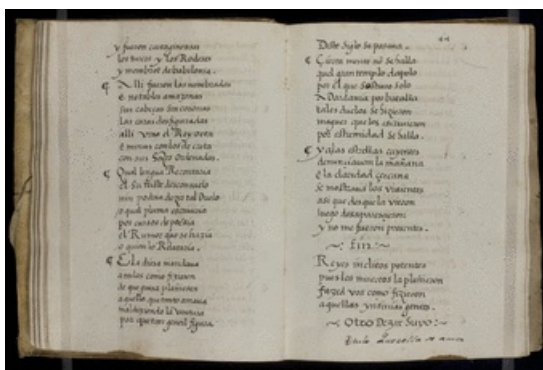 y fueron cartaginenses
los turcos y los Rodeses
y nombrot de babilonia.
¶ Alli fueron las nombradas
e notables amazonas
sus cabeças sin coronas
las caras desfiguradas
alli vino el Rey
e minus con los de creta
con sus Sages ordenadas.
¶ Qual lengua Recontaria
el Su triste desconsuelo
nin podria dezir tal Duelo
o qual pluma escreuiria
por cursos de poesia
el Rumor que se hazia
o quien lo Relataria.
¶ Ella dixo mandaua
a todos como fizieron
de que para plañieron
aquello que tanto amaua
maldiziendo la ventura
por que tan gentil figura
Deste Siglo Se pasaua.
¶ Cierta mente no se halla
qual gran templo de apolo
por el que Solo
A Dardania por batalla
tales duelos se hiziesen
magues que los
por estremidad se halla.
¶ ya las estrellas cayentes
denunciauan la mañana
e la claridad çercana
se mostraua los viuientes
asi que des que la vieron
luego desaparesçieron
y no me fueron presentes.
~: fin :~
Reyes inclitos potentes
pues los muertos la plañieron
fazed vos como fizieron
aquellas gentes.
~ Otro Dezir Suyo :~